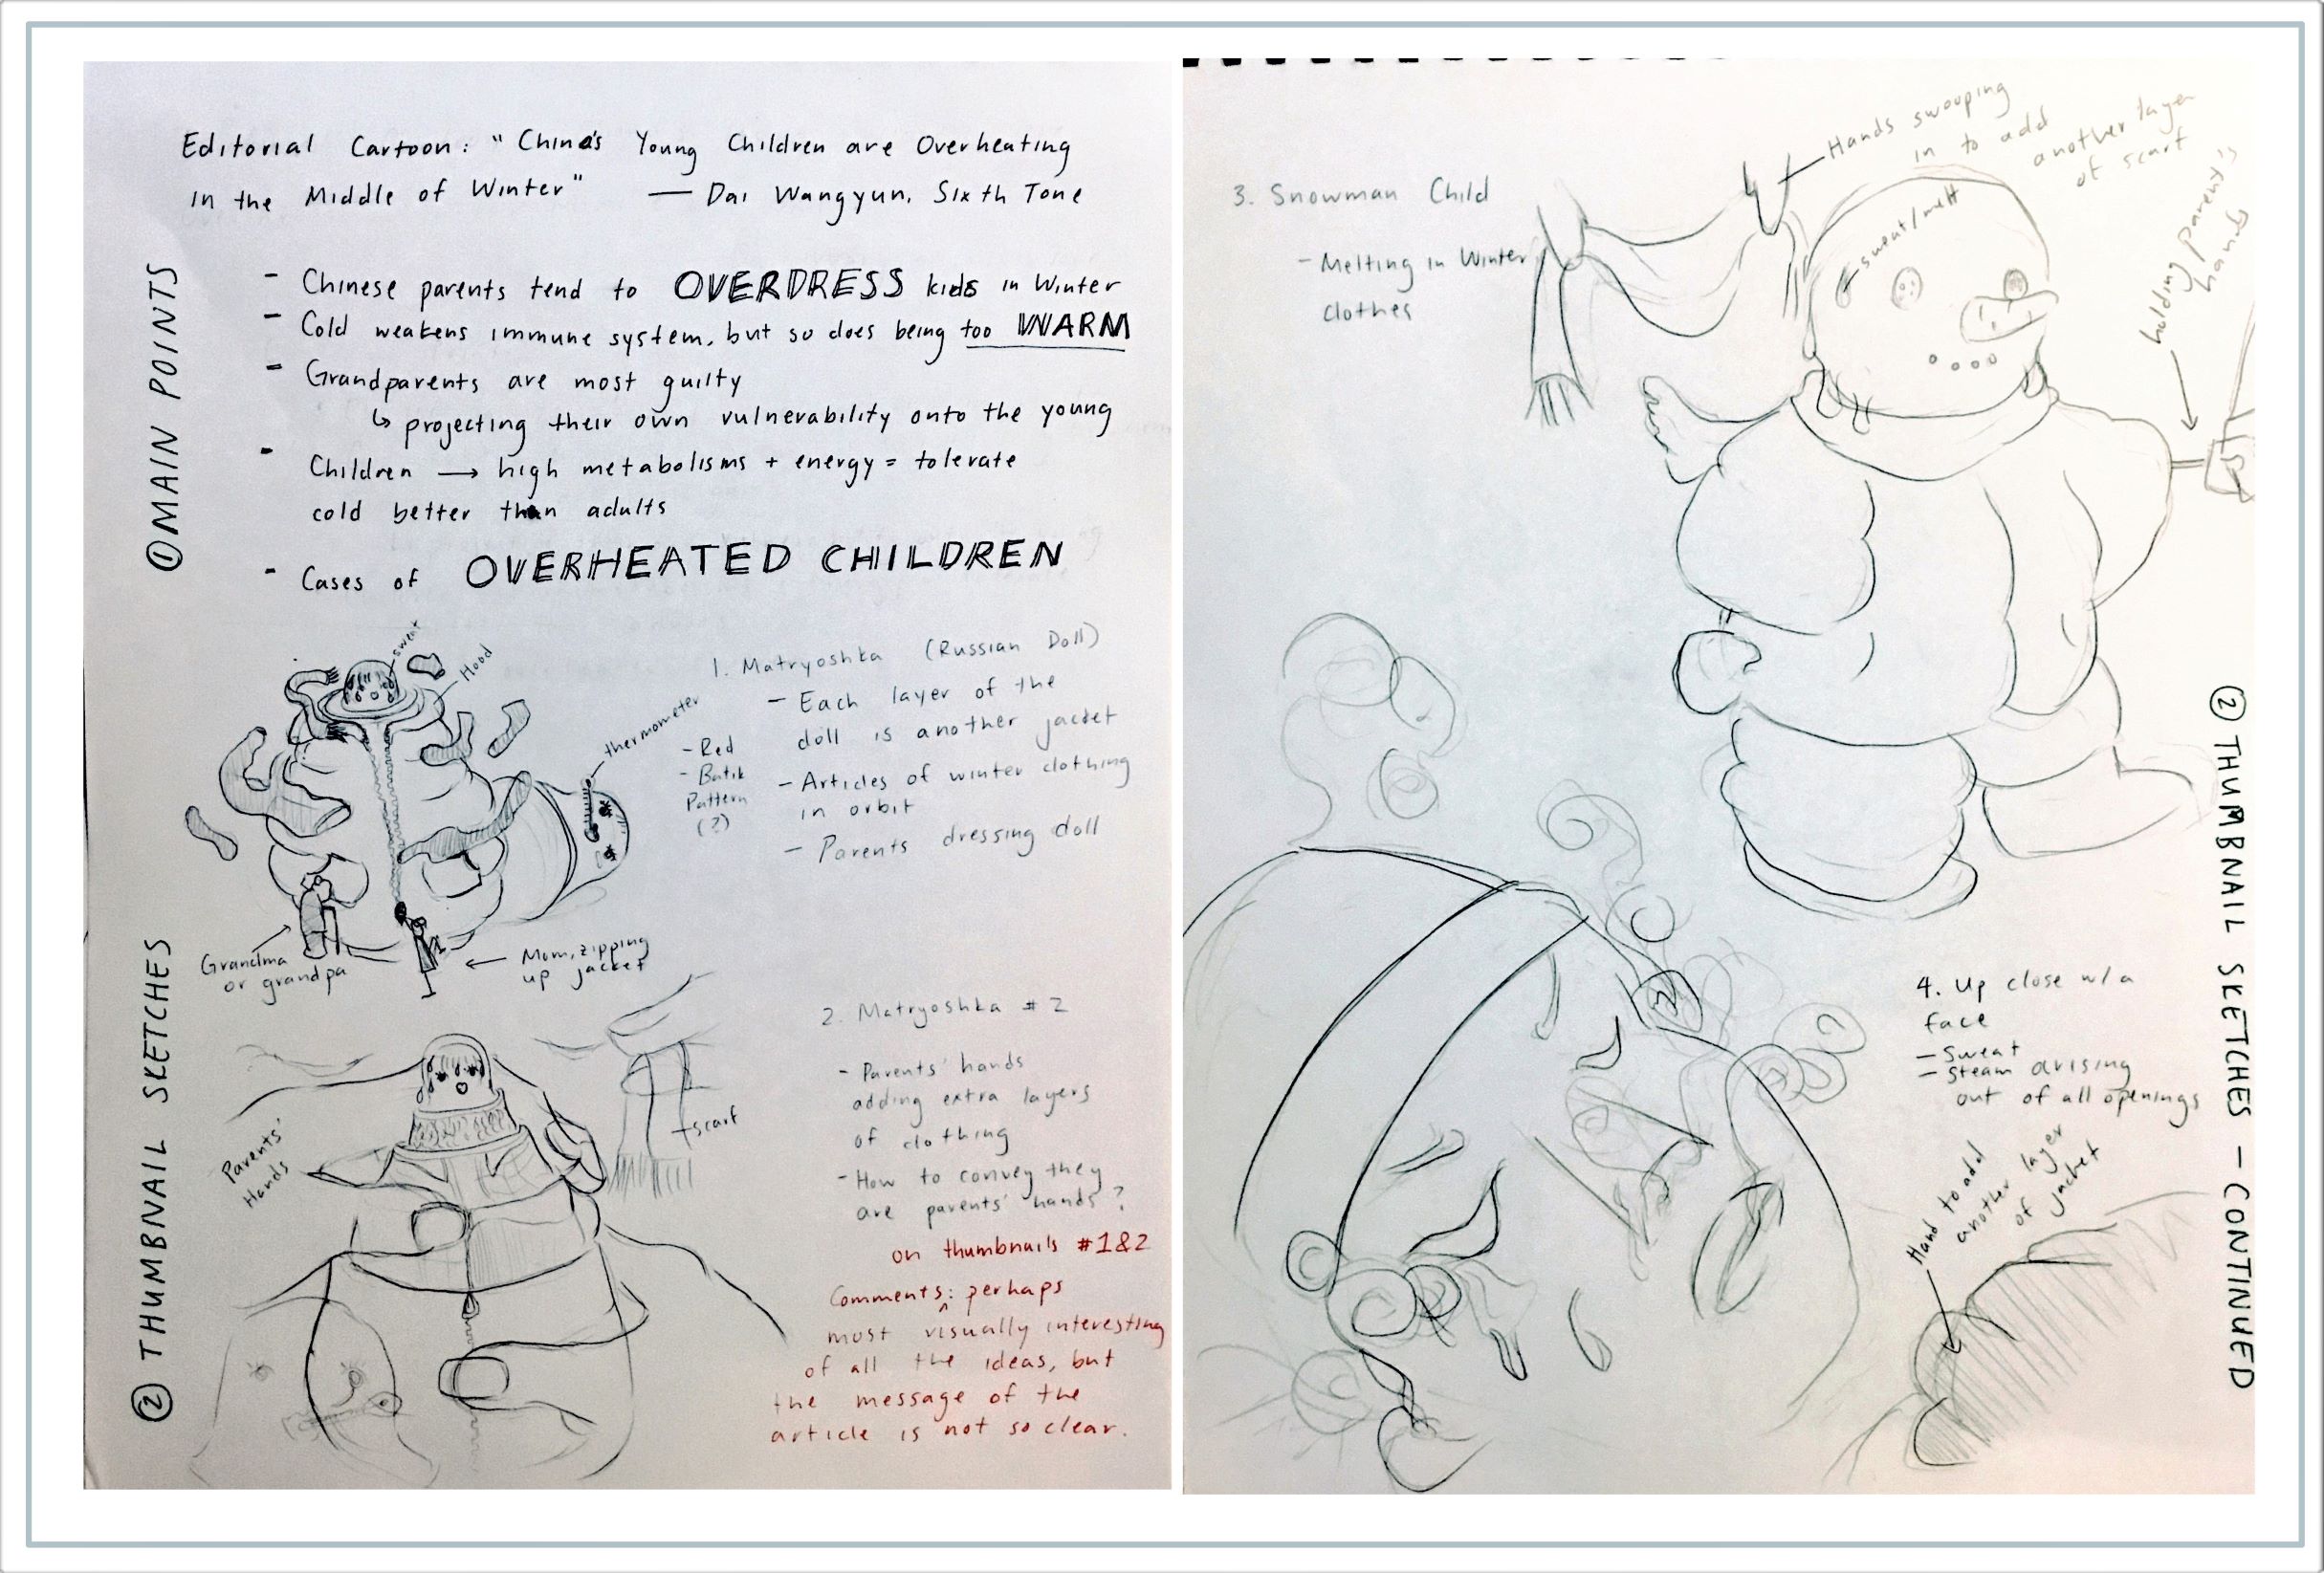 Editorial Cartoon: "China's Young Children are Overheating
in the Middle of Winter" — Dai Wangyun, Sixth Tone
① MAIN POINTS
- Chinese parents tend to OVERDRESS kids in Winter
- Cold weakens immune system, but so does being too WARM
- Grandparents are most guilty
↳ projecting their own vulnerability onto the young
- Children → high metabolisms + energy = tolerate
cold better than adults
- Cases of OVERHEATED CHILDREN
② THUMBNAIL SKETCHES
sweat
Hood
thermometer
Grandma
or grandpa
Mom, zipping
up jacket
1. Matryoshka (Russian Doll)
- Each layer of the
doll is another jacket
- Articles of winter clothing
in orbit
- Parents dressing doll
- Red
- Batik
Pattern
(?)
Parents'
Hands
scarf
2. Matryoshka #2
- Parents' hands
adding extra layers
of clothing
- How to convey they
are parents' hands?
on thumbnails #1&2
Comments: perhaps
most visually interesting
of all the ideas, but
the message of the
article is not so clear.
3. Snowman Child
- Melting in Winter
clothes
Hands swooping
in to add
another layer
of scarf
sweat/melt
holding parent's
hand
② THUMBNAIL SKETCHES - CONTINUED
4. Up close w/ a
face
- Sweat
- Steam arising
out of all openings
Hand to add
another layer
of jacket